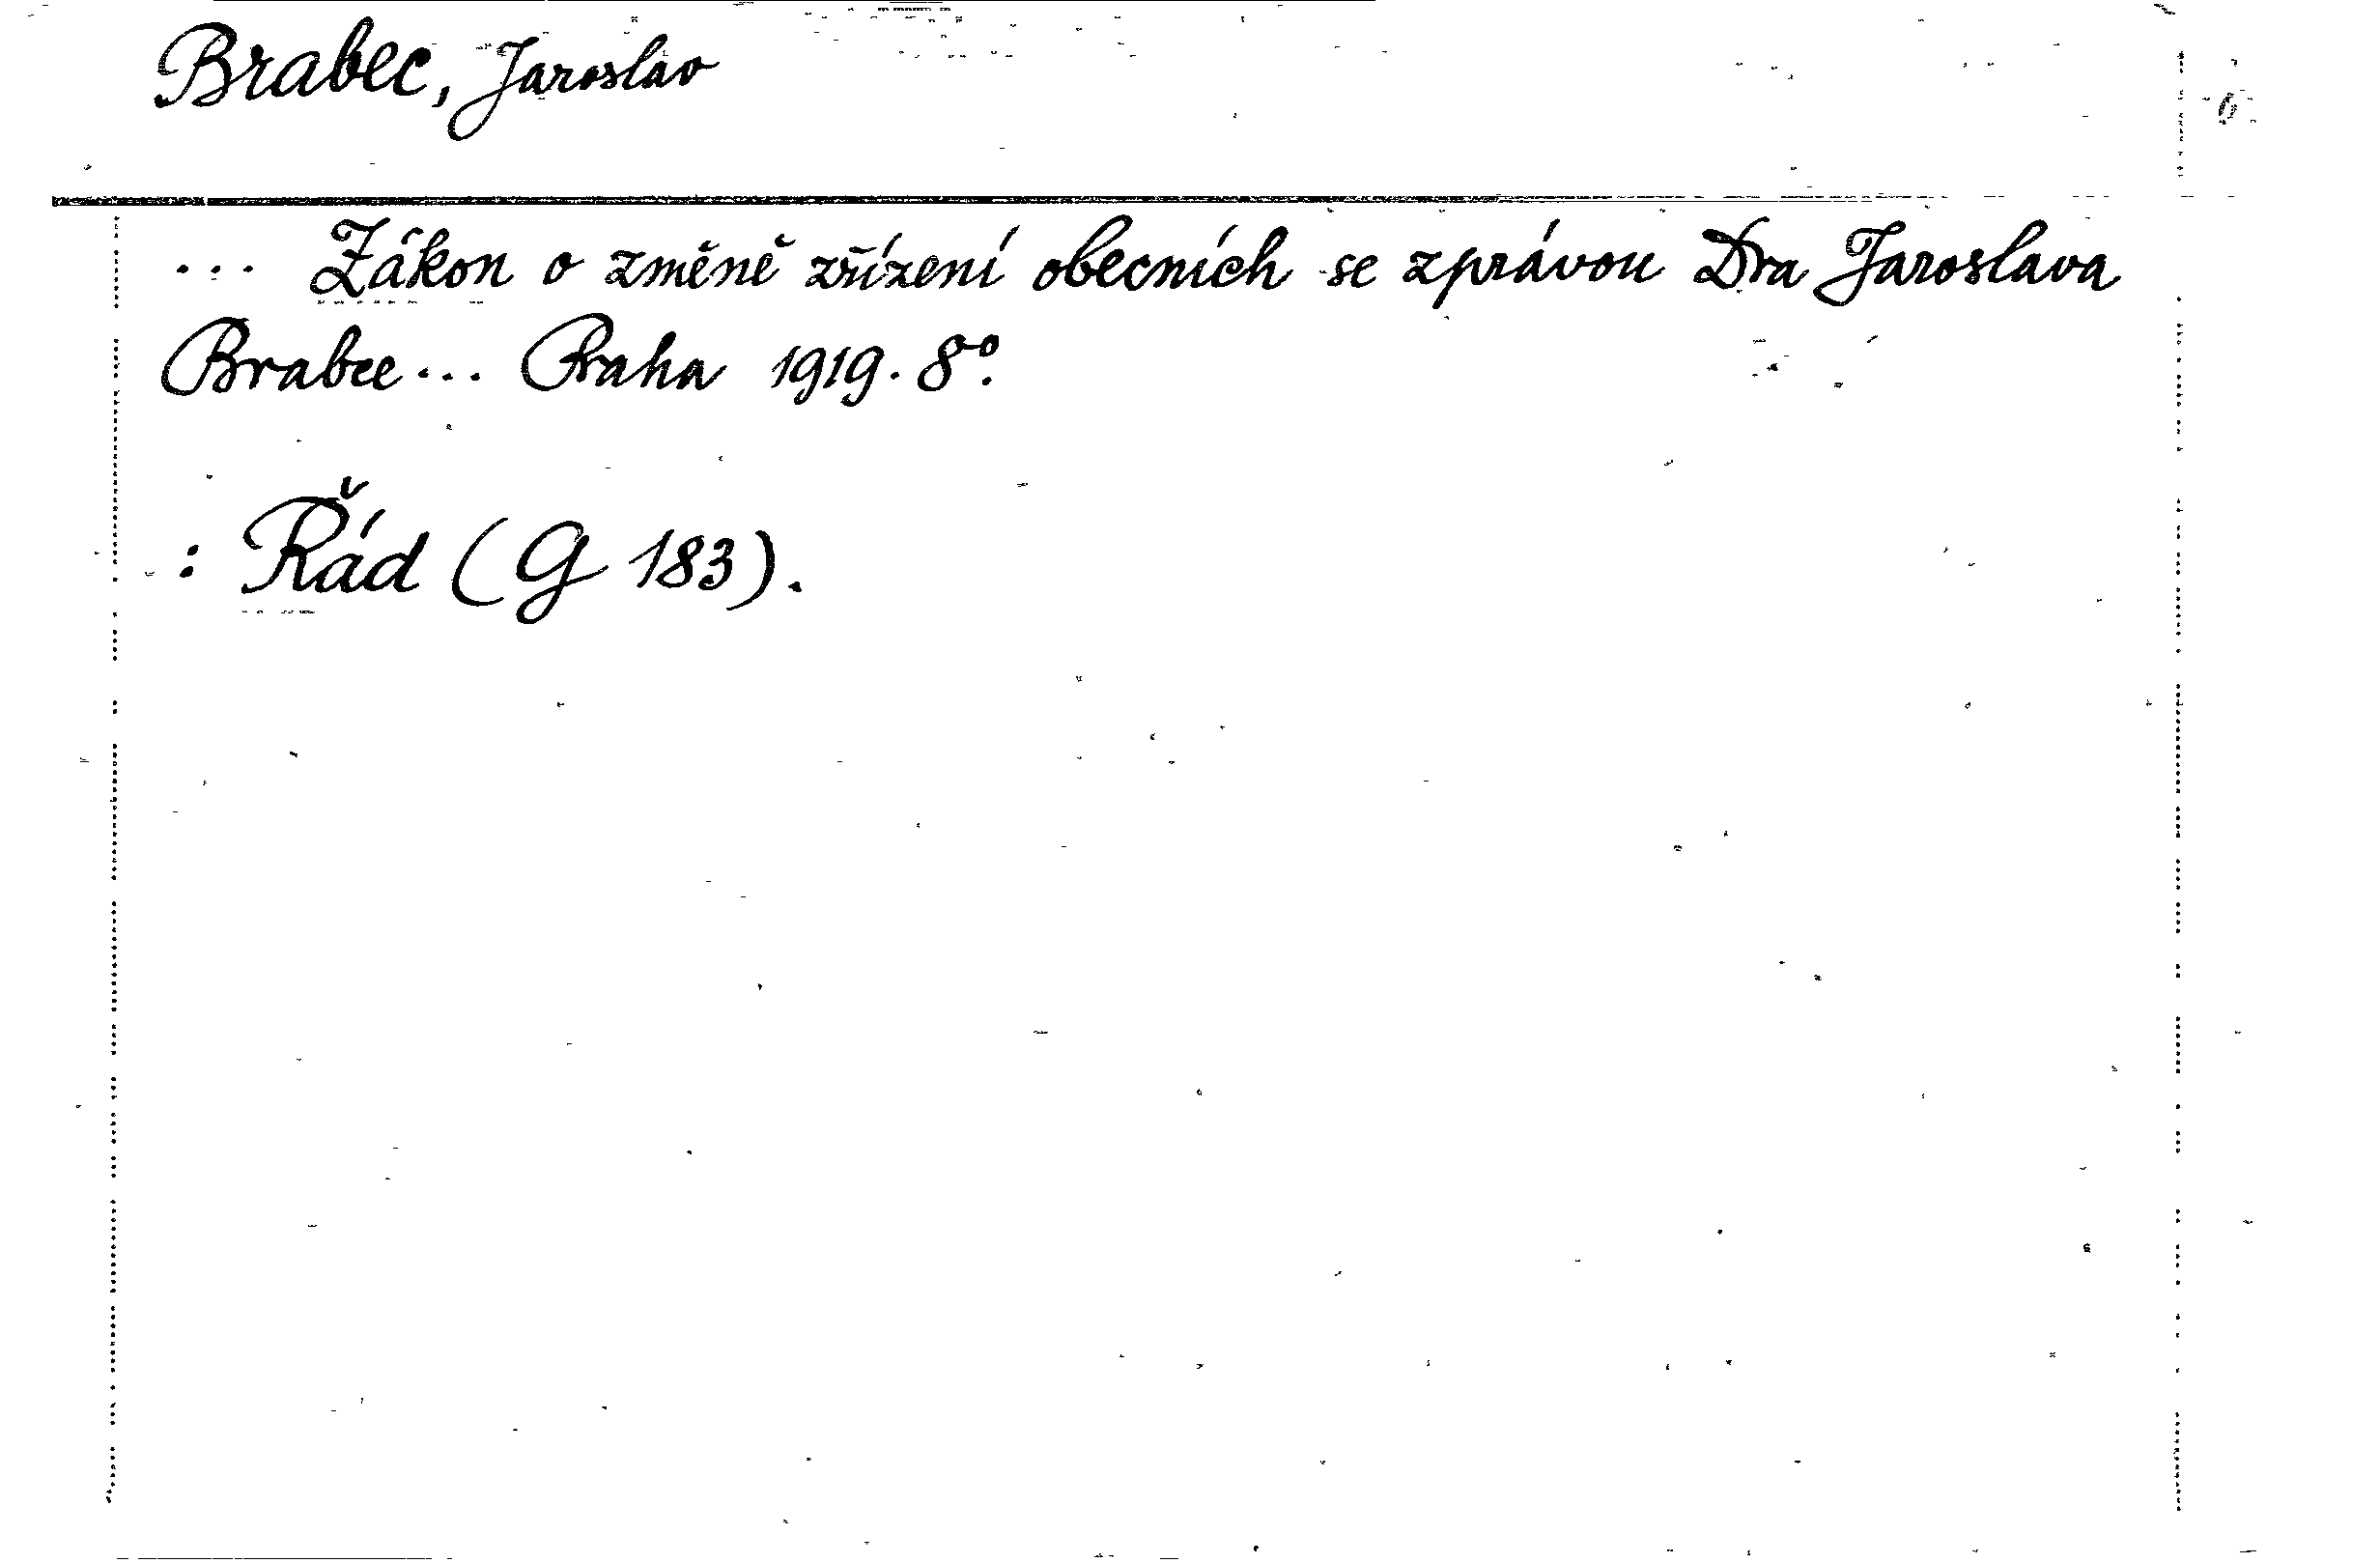 Brabec, Jaroslav
... Zákon o změně zřízení obecních se zprávou Dra Jaroslava
Brabce... Praha 1919. 8°.
: Řád (G 183).